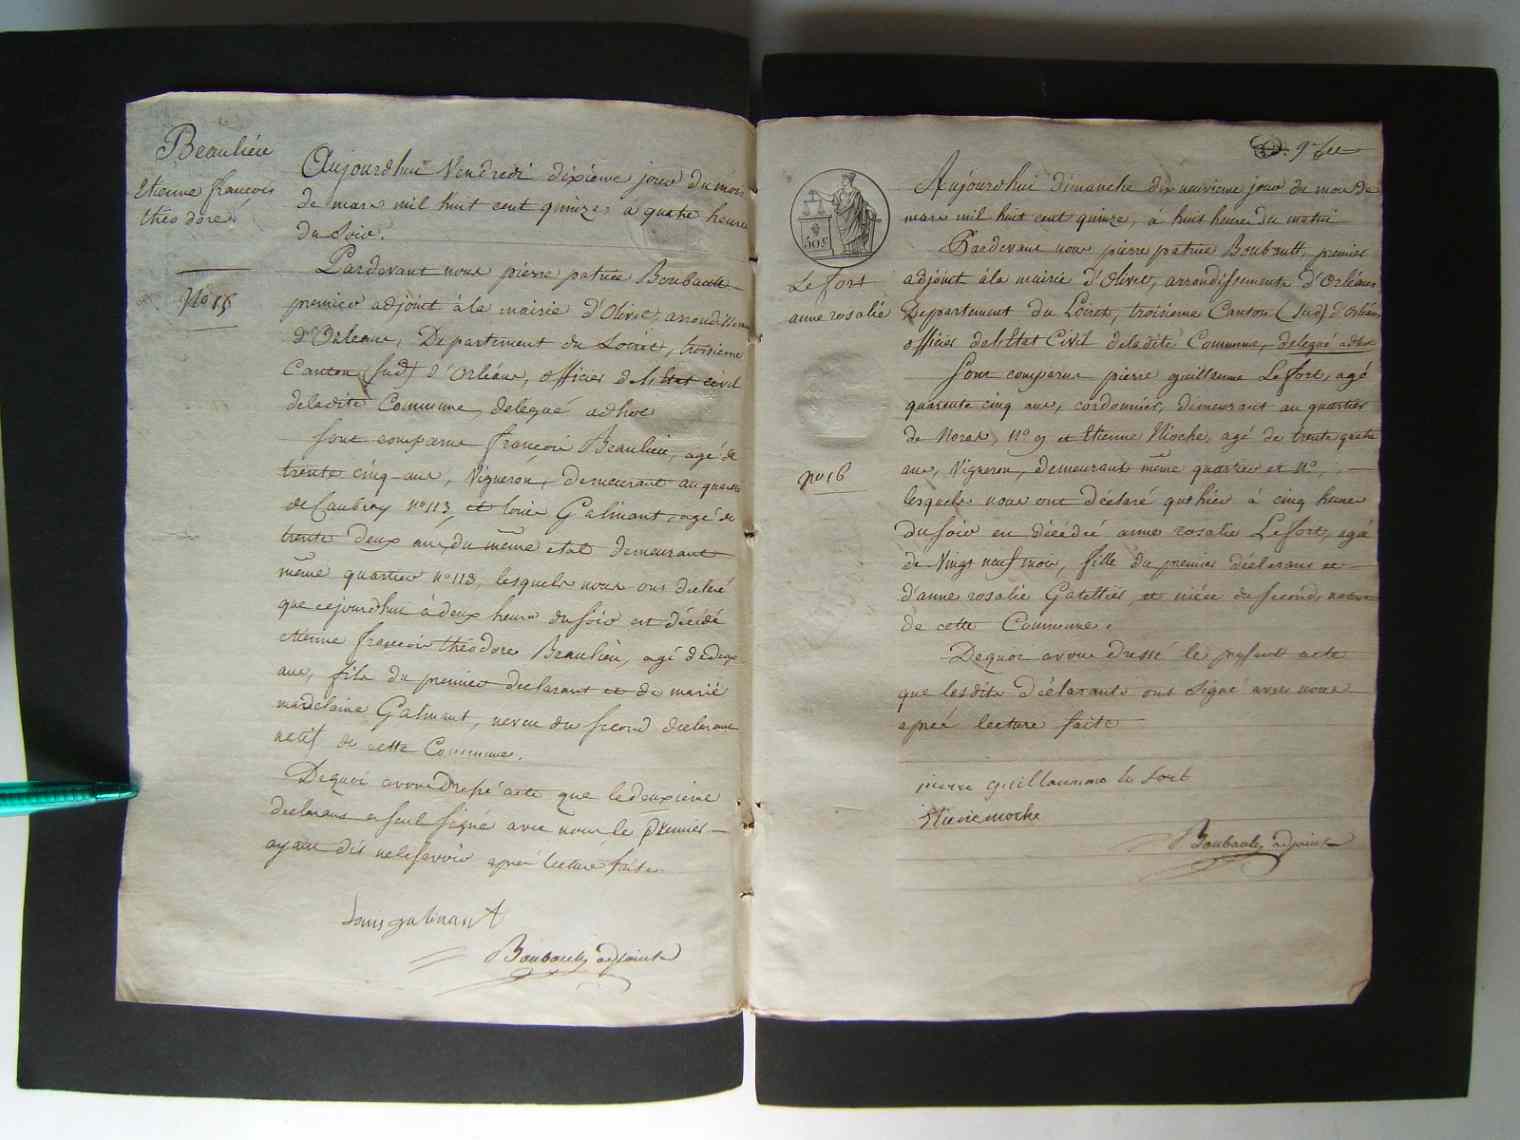 Beaulieu
Etienne françois
théodore
N° 15
Aujourdhui Vendredi dixième jour du mois
de mars mil huit cent quinze, a quatre heures
du Soir.
Pardevant nous pierre patrice Boubault
premier adjoint à la mairie d'Olivet arrondissem
d'Orleans, Departement du Loiret, troisieme
Canton (Sud) d'Orléans, officier de l'Etat civil
deladite Commune, delegué adhoc
Sont comparus françois Beaulieu, agé de
trente cinq ans, Vigneron, demeurant au quartier
de Caubray n° 113, et louis Galmant, agé de
trente deux ans, du même etat demeurant
même quartier n° 113, lesquels nous ont declaré
que cejourdhui à deux heures du soir est décédé
etienne françois théodore Beaulieu, agé de deux
ans, fils du premier declarant et de marie
madelaine Galmant, neveu du second declarant
natif de cette Commune.
Dequoi avons Dressé acte que le deuxieme
declarant a seul signé avec nous, le premier
ayant dit ne le savoir après lecture faite.
Louis galmant
Boubault adjoint
Le fort
anne rosalie
50c
n° 16
Aujourdhui dimanche dix neuvieme jour du mois de
mars mil huit cent quinze, à huit heures du matin
Pardevant nous pierre patrice Boubault, premier
adjoint à la mairie d'Olivet, arrondissement d'Orléans
Departement du Loiret, troisieme Canton (Sud) d'Orléans
officier de l'Etat Civil deladite Commune, delegué adhoc
Sont comparus pierre guillaume Le fort, agé
quarante cinq ans, cordonnier, demeurant au quartier
de Noras, n° 9 et Etienne Mioche, agé de trente quatre
ans, Vigneron, demeurant même quartier et N°,
lesquels nous ont déclaré qu'hier à cinq heures
du soir est décédé anne rosalie Le fort, agé
de Vingt neuf mois, fille du premier déclarant et
d'anne rosalie Gatellier, et niéce du second, native
de cette Commune.
Dequoi avons dressé le présent acte
que lesdits déclarants ont signé avec nous
après lecture faite
pierre guillaumme le fort
Etiene moche
Boubault adjoint